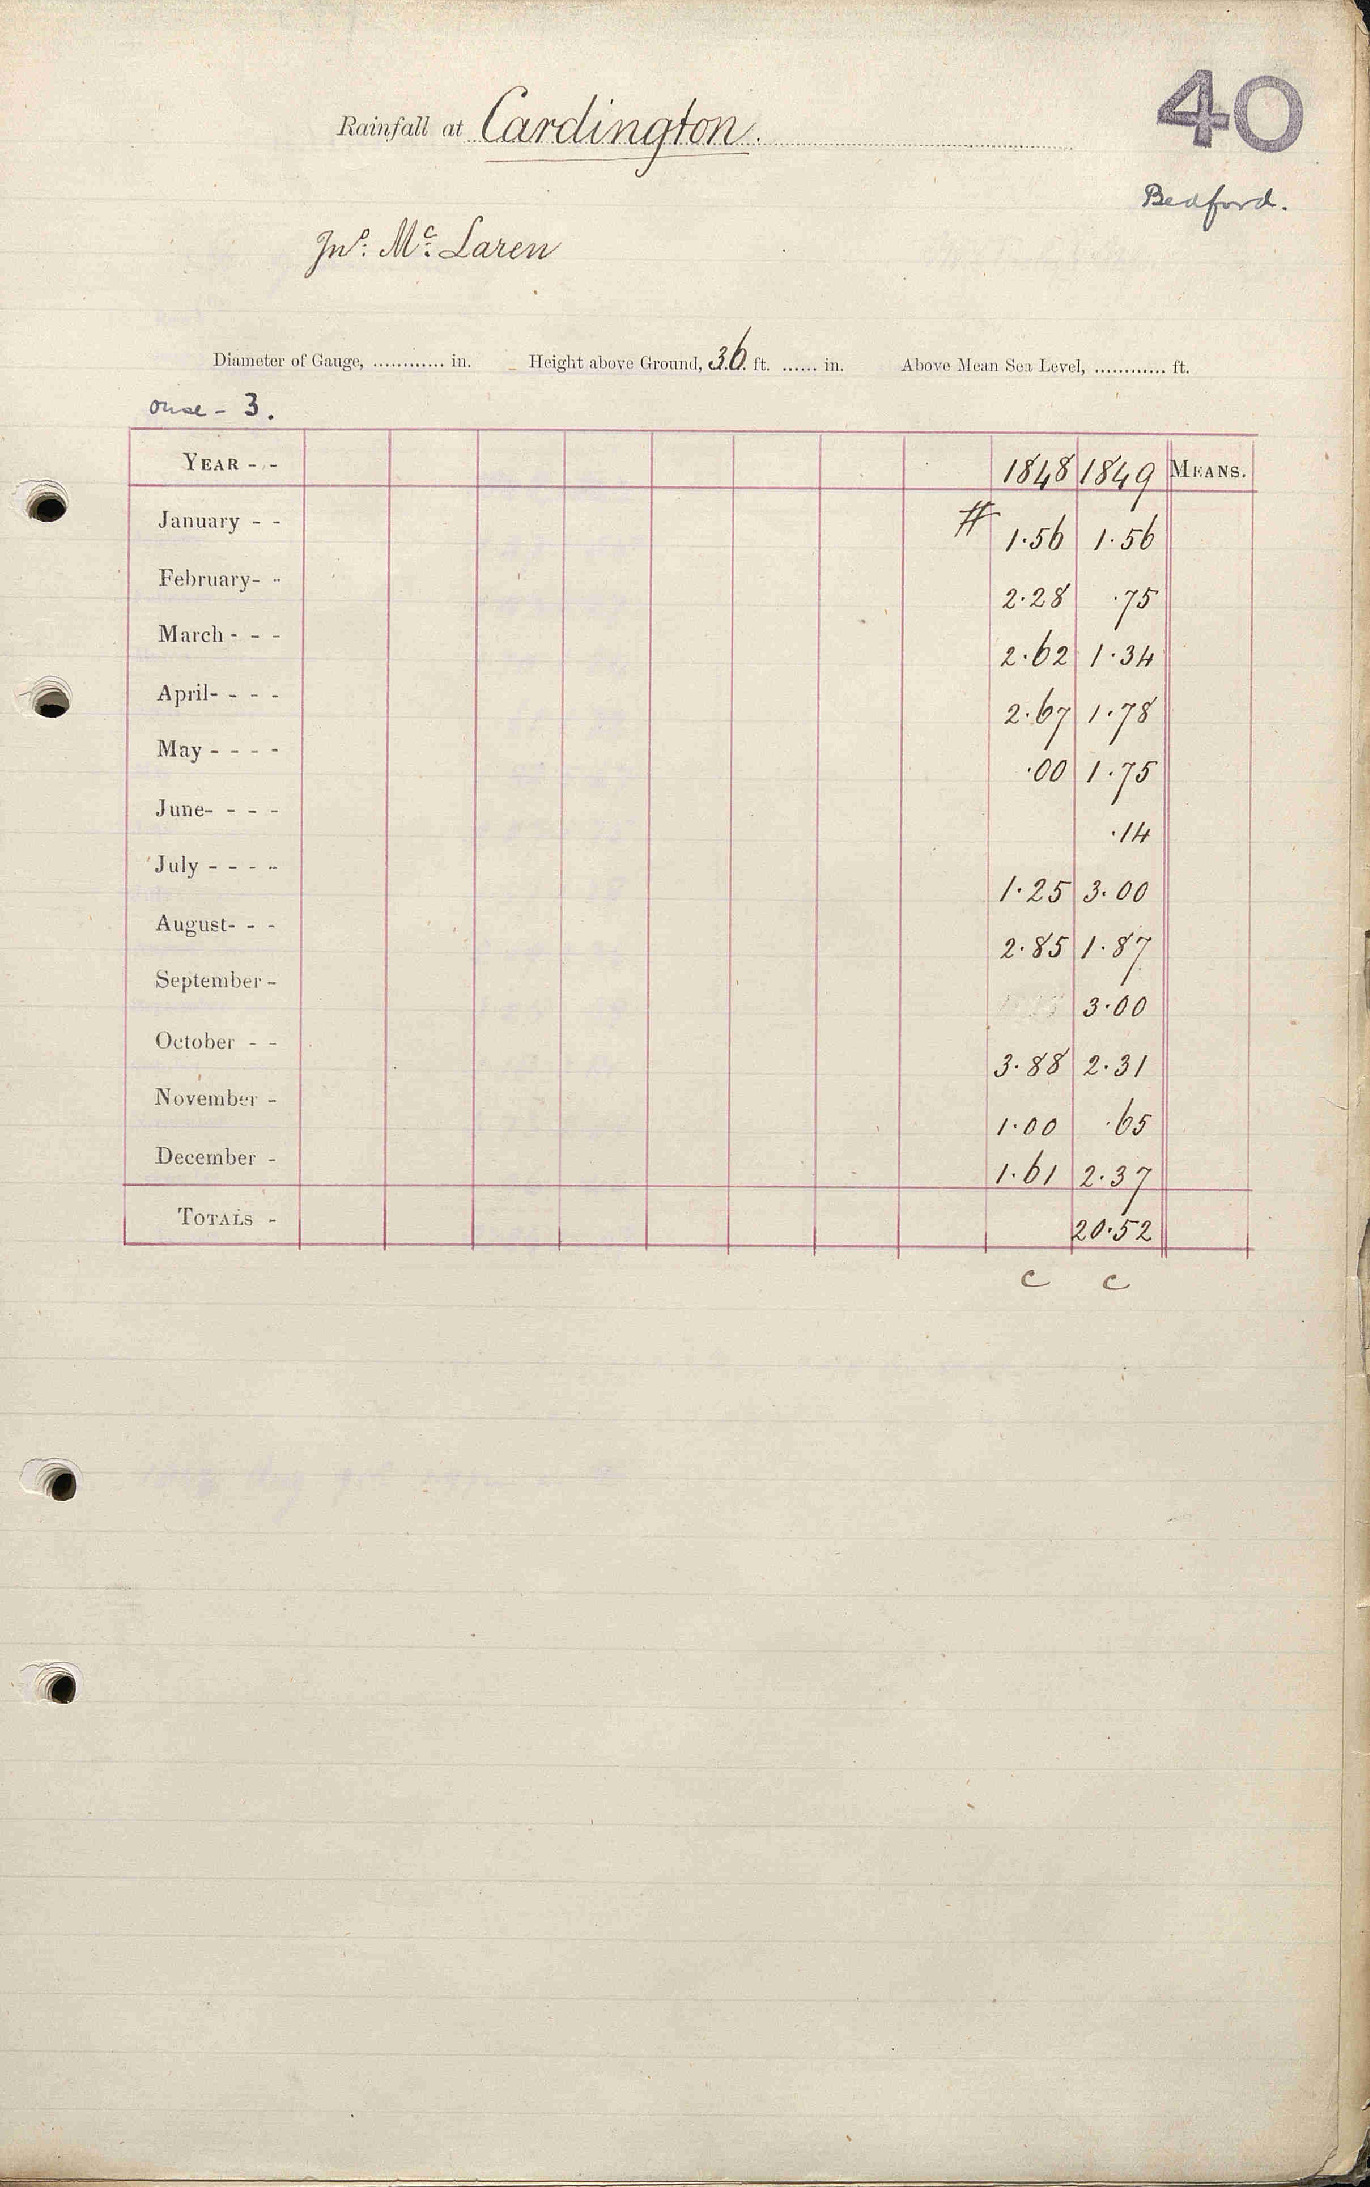 40
Rainfall at Cardington.
Bedford.
Jno. Mc. Laren
Diameter of Gauge, ............ in. Height above Ground, 36 ft. ...... in. Above Mean Sea Level, ............ ft.
ouse - 3.
YEAR - - 1848 1849 MEANS.
January - - # 1.56 1.56
February- - 2.28 .75
March - - - 2.62 1.34
April- - - - 2.67 1.78
May - - - - .00 1.75
June- - - - .14
July - - - - 1.25 3.00
August- - - 2.85 1.87
September - 3.00
October - - 3.88 2.31
November - 1.00 .65
December - 1.61 2.37
TOTALS - 20.52
c c